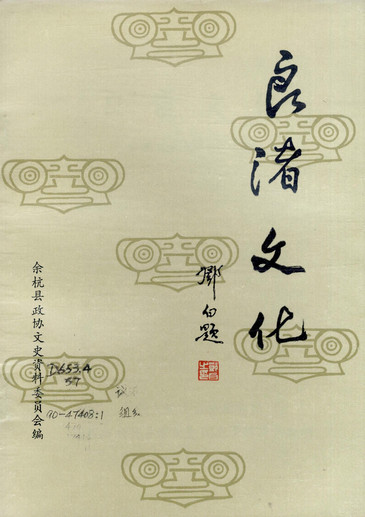 良渚文化
邓白题
余杭县政协文史资料委员会编
90-47408:1